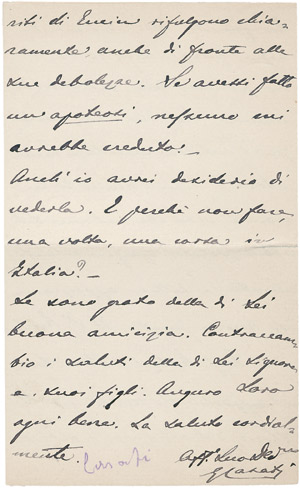 riti di Emin rifulgono chia-
ramente, anche di fronte alle
sue debolezze. Se avessi fatto
un apoteosi, nessuno mi
avrebbe creduto! -
Anch' io avrei desiderio di
vederla. E perchè non fare,
una volta, una corsa in
Italia? -
Le sono grato della di Lei
buona amicizia. Contraccam-
bio i saluti della di Lei Signora
e suoi figli. Auguro Loro
ogni bene. La saluto cordial-
mente.
Casati
GCasati